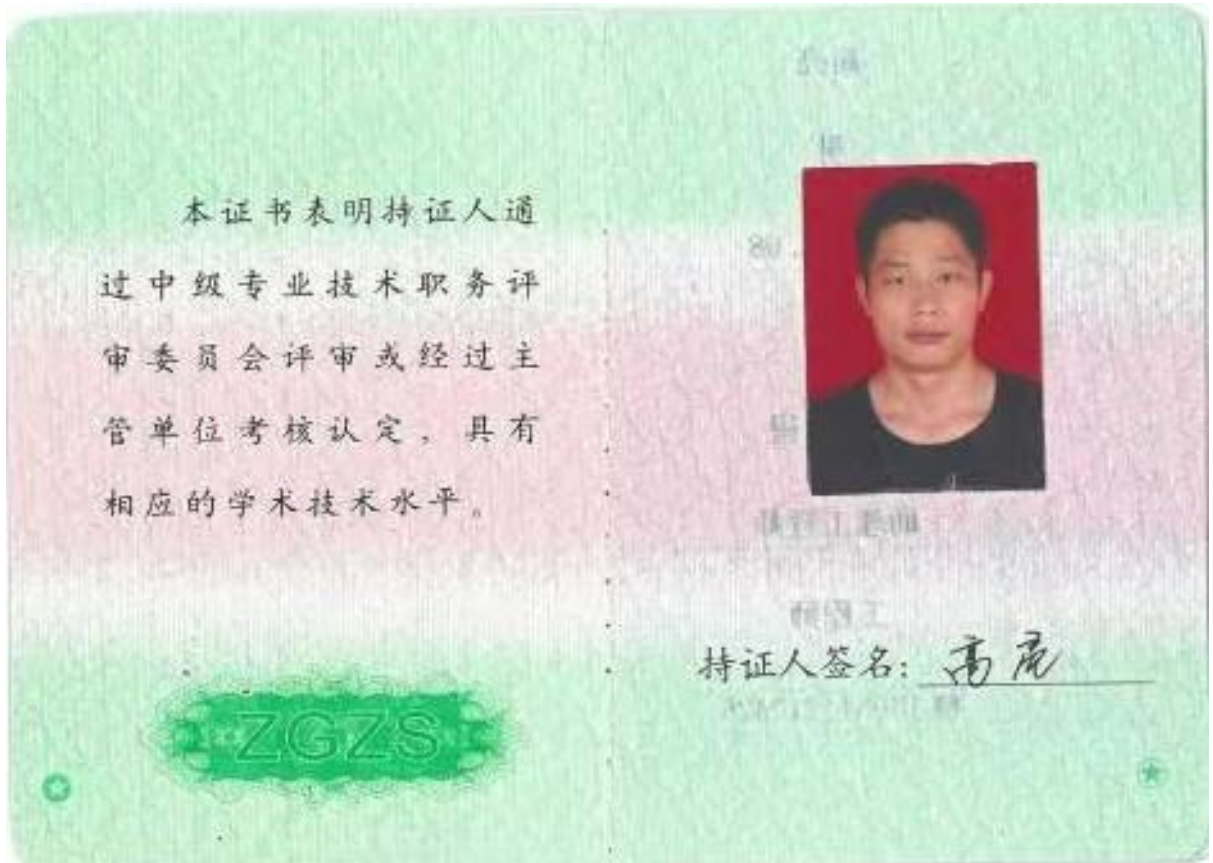 本证书表明持证人通
过中级专业技术职务评
审委员会评审或经过主
管单位考核认定，具有
相应的学术技术水平。
ZGZS
工程师
持证人签名：高虎